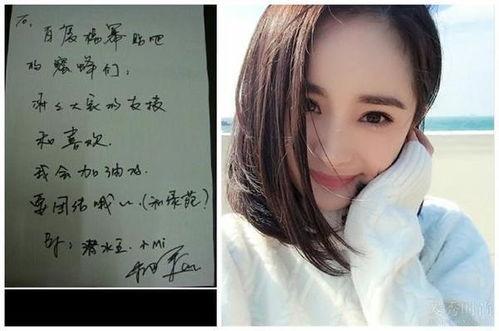 To.
百度杨幂贴吧
的蜜蜂们：
谢々大家的支持
和喜欢.
我会加油
要团结哦~
By: 潜水王. 小Mi
杨幂